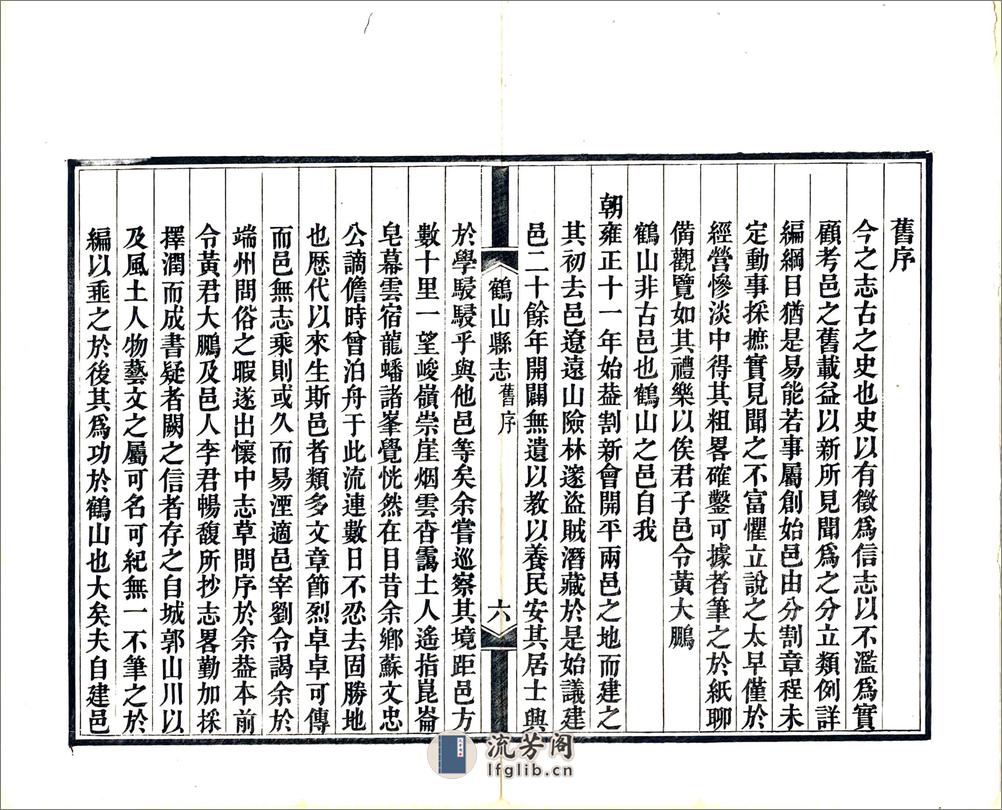 舊序
今之志古之史也史以有徵爲信志以不濫爲實
顧考邑之舊載益以新所見聞爲之分立類例詳
編綱目猶是易能若事屬創始邑由分割章程未
定動事採摭實見聞之不富懼立說之太早僅於
經營慘淡中得其粗畧確鑿可據者筆之於紙聊
備觀覽如其禮樂以俟君子邑令黃大鵬
鶴山非古邑也鶴山之邑自我
朝雍正十一年始葢割新會開平兩邑之地而建之
其初去邑遼遠山險林邃盜賊潛藏於是始議建
邑二十餘年開闢無遺以教以養民安其居士興
鶴山縣志 舊序 六
於學駸駸乎與他邑等矣余嘗巡察其境距邑方
數十里一望峻嶺崇崖烟雲杳靄土人遙指崑崙
皂幕雲宿龍蟠諸峯覺恍然在目昔余鄉蘇文忠
公謫儋時曾泊舟于此流連數日不忍去固勝地
也歷代以來生斯邑者類多文章節烈卓卓可傳
而邑無志乘則或久而易湮適邑宰劉令謁余於
端州問俗之暇遂出懷中志草問序於余葢本前
令黃君大鵬及邑人李君暢馥所抄志畧勤加採
擇潤而成書疑者闕之信者存之自城郭山川以
及風土人物藝文之屬可名可紀無一不筆之於
編以垂之於後其爲功於鶴山也大矣夫自建邑
流芳阁
lfglib.cn